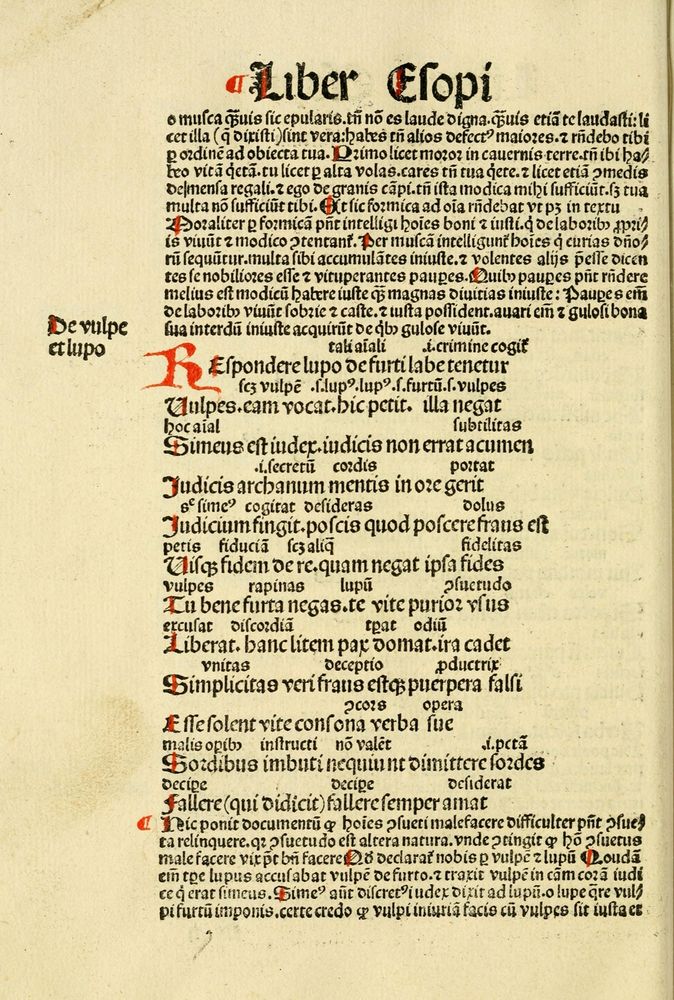 ¶ Liber Esopi
o musca q̃uis sic epularis. tñ nõ es laude digna. q̃uis etiã te laudasti: li
cet illa (q̃ dixisti) sint vera: habes tñ alios defectꝰ maiores. ⁊ rñdebo tibi
ꝑ ordinẽ ad obiecta tua. Primo licet moror in cauernis terre. tñ ibi ha⸗
beo vitã q̃etã. tu licet ꝑ alta volas. cares tñ tua q̃ete. ⁊ licet etiã ꝯmedis
de mensa regali. ⁊ ego de granis cãpi. tñ ista modica mihi sufficiũt. sꝫ tua
multa nõ sufficiũt tibi. Et sic formica ad oĩa rñdebat vt pꝫ in textu
Moraliter ꝑ formicã pñt intelligi hoĩes boni ⁊ iusti. q̃ de laboribꝰ ꝓpri⸗
is viuũt ⁊ modico ꝯtentant᷑. Per muscã intelligunt᷑ hoĩes q̃ curias dño⸗
rũ sequũtur. multa sibi accumulãtes iniuste. ⁊ volentes alijs ꝑesse dicen
tes se nobiliores esse ⁊ vituperantes pauꝑes. Quibꝰ pauꝑes pñt rñdere
melius est modicũ habere iuste q̃ magnas diuitias iniuste: Pauꝑes em̃
de laboribꝰ viuũt sobrie ⁊ caste. ⁊ iusta possident. auari em̃ ⁊ gulosi bona
sua interdũ iniuste acquirũt de q̃bꝰ gulose viuũt.
De vulpe
et lupo
tali aĩali .i. crimine cogit᷑
REspondere lupo de furti labe tenetur
scꝫ vulpẽ .s. lupꝰ. lupꝰ .s. furtũ. s. vulpes
Vulpes. eam vocat. hic petit. illa negat
hoc aĩal subtilitas
Simeus est iudex. iudicis non errat acumen
.i. secretũ cordis portat
Judicis archanum mentis in ore gerit
sᶜ simeꝰ cogitat desideras dolus
Judicium fingit. poscis quod poscere fraus est
petis fiduciã scꝫ aliq̃ fidelitas
Uisqꝫ fidem de re. quam negat ipsa fides
vulpes rapinas lupũ ꝯsuetudo
Tu bene furta negas. te vite purior vsus
excusat discordiã tꝑat odiũ
Liberat. hanc litem pax domat. ira cadet
vnitas deceptio ꝓductrix
Simplicitas veri fraus estqꝫ puerpera falsi
ꝯcors opera
Esse solent vite consona verba sue
malis opibꝰ instructi nõ valẽt .i. pctã
Sordibus imbuti nequiunt dimittere sordes
decipe decipe desiderat
Fallere (qui didicit) fallere semper amat
¶ Hic ponit documentũ ꝙ hoĩes ꝯsueti malefacere difficulter pñt ꝯsue⸗
ta relinquere. qꝛ ꝯsuetudo est altera natura. vnde ꝯtingit ꝙ hõ ꝯsuetus
male facere vix pt̃ bñ facere Qđ declarat᷑ nobis ꝑ vulpẽ ⁊ lupũ Quodam
em̃ tꝑe lupus accusabat vulpẽ de furto. ⁊ traxit vulpẽ in cãm corã iudi
ce q̃ erat simeus. Simeꝰ aũt discretꝰ iudex dixit ad lupũ. o lupe q̃re vul⸗
pi furtũ imponis. certe credo ꝙ vulpi iniuriã facis cũ vulpes sit iusta et